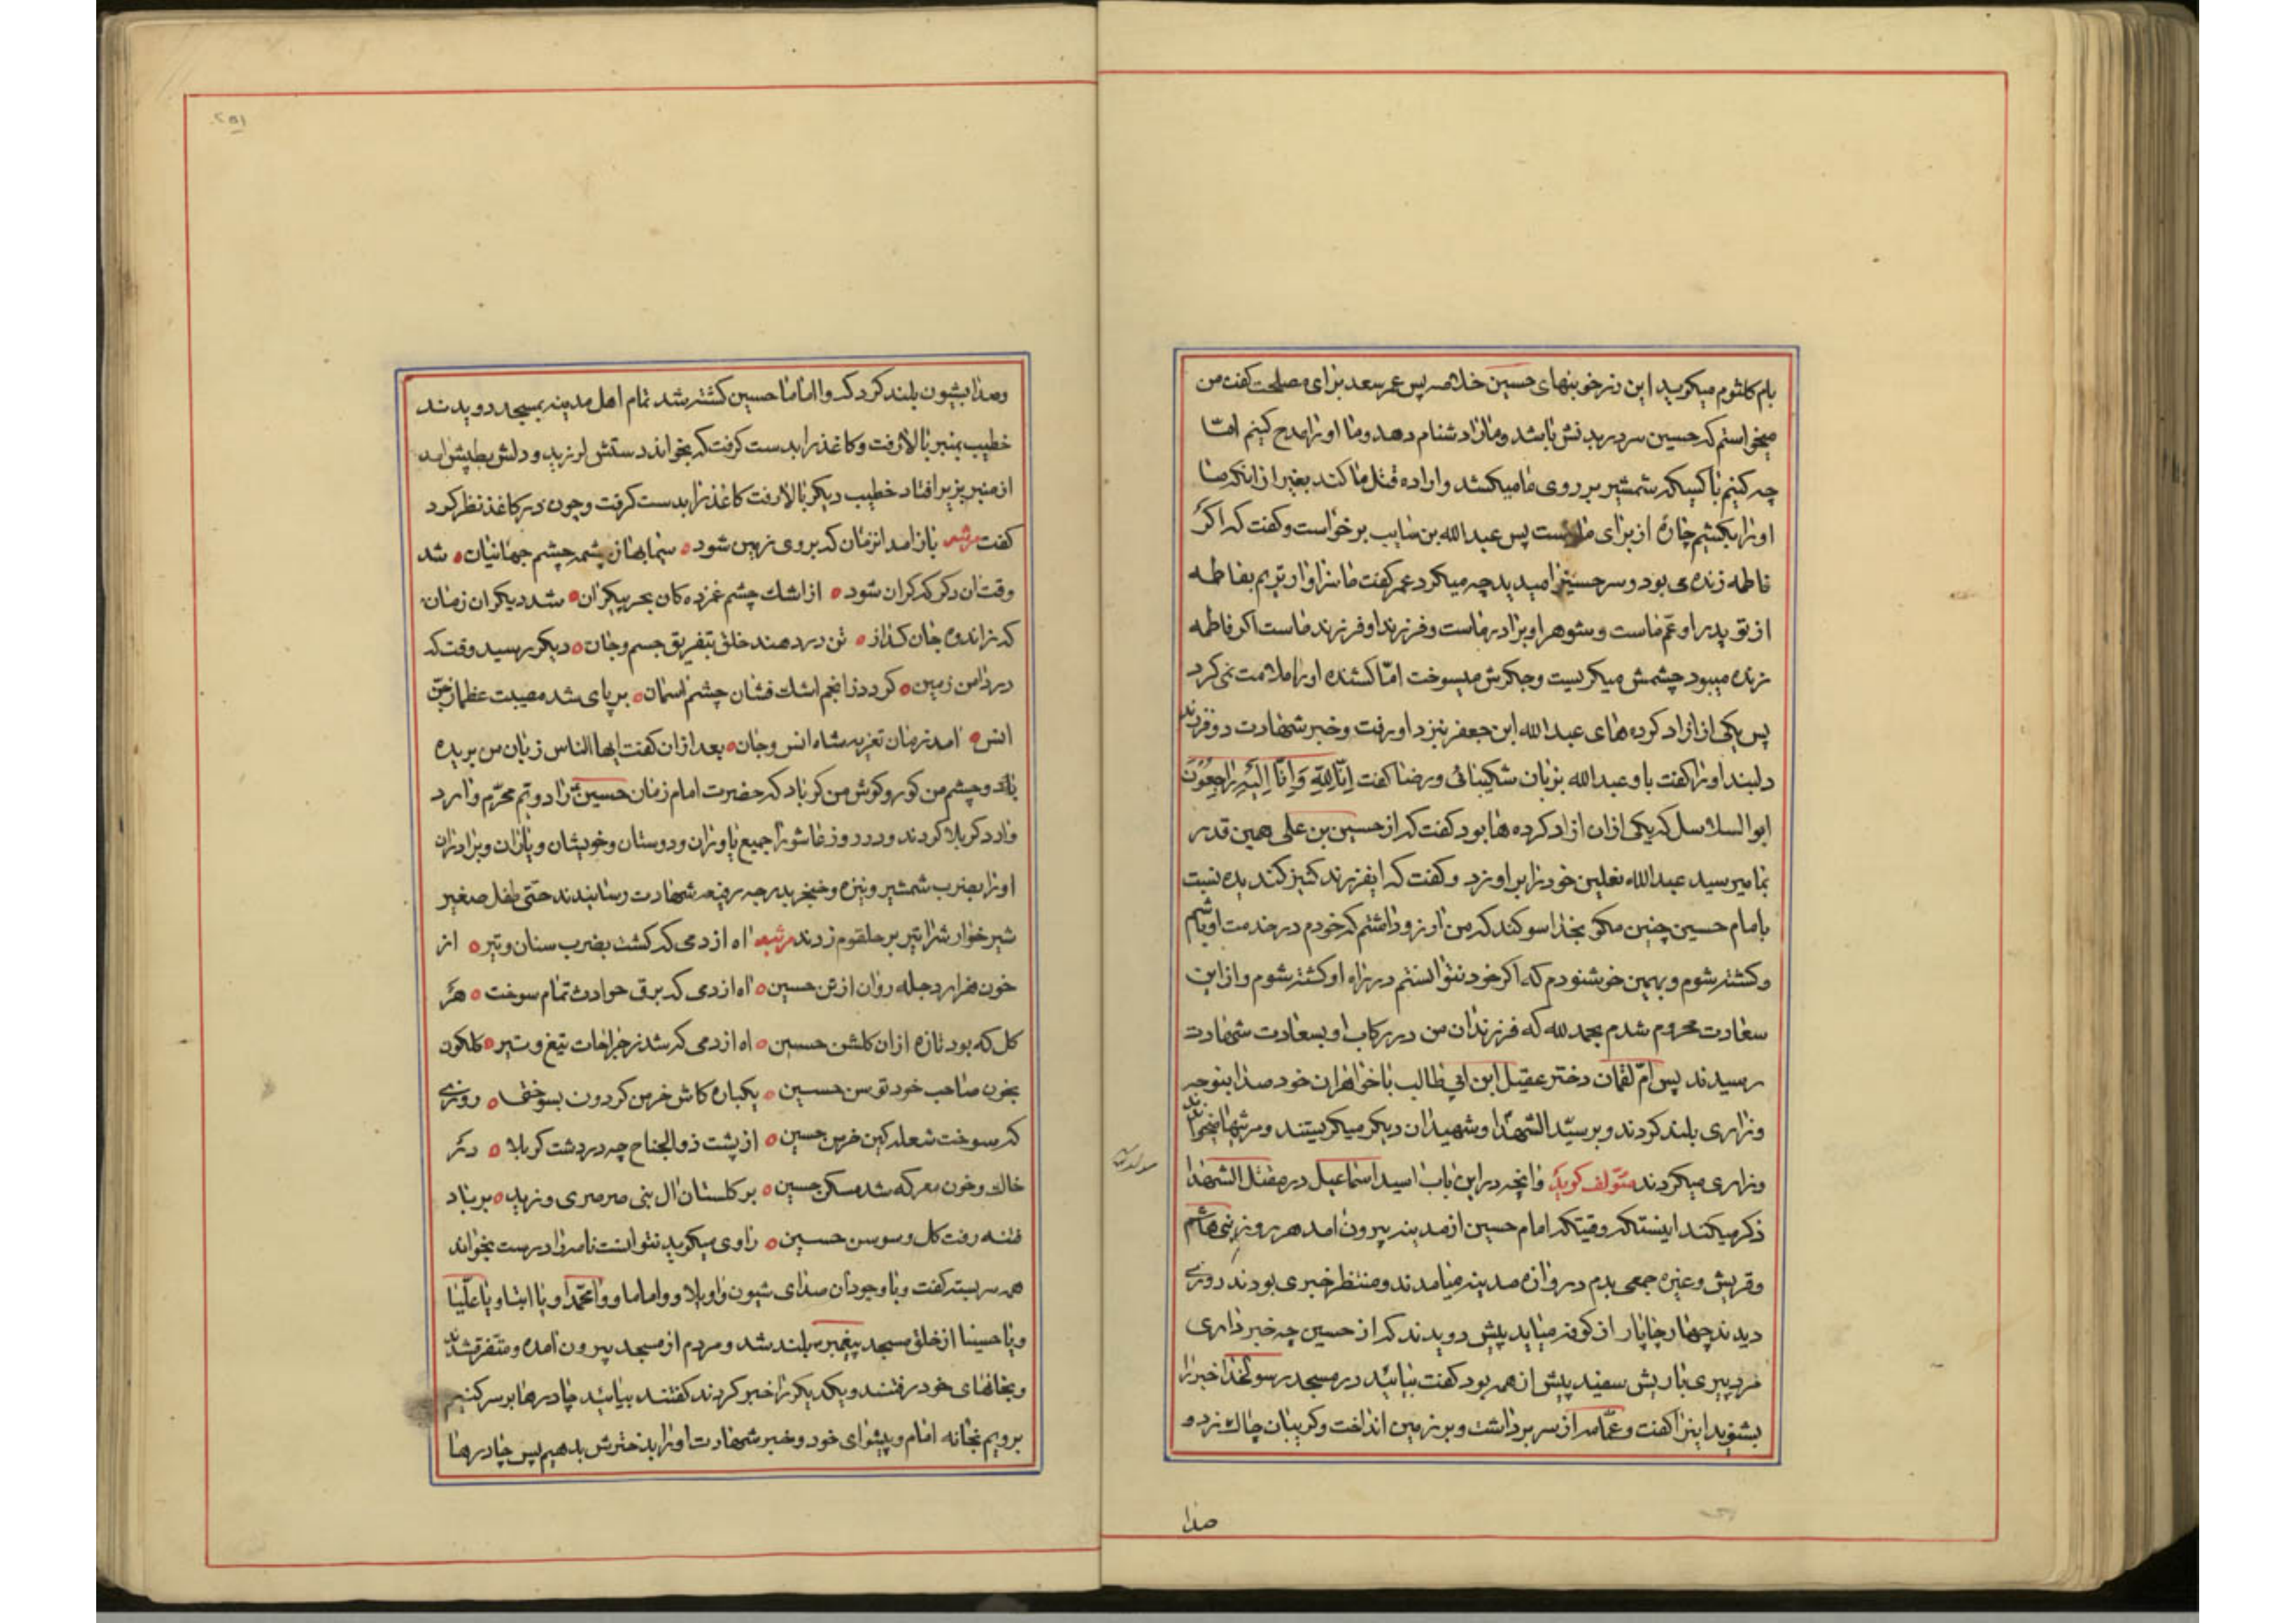 بام کلثوم میکوید این زنر خونبهای حسین خلاصه پس عمر سعد برای مصلحت کفت من
میخواستم که حسین سر در بدنش باشد و مارا دشنام دهد و ما اورا مدح کنیم امّا
چه کنیم با کسیکه شمشیر بر روی ما میکشد و اراده قتل ما کند بغیر از انکه ما
اورا بکشیم چارهٔ از برای ما نیست پس عبدالله بن سایب برخواست و کفت که اکر
فاطمه زنده می بود و سر حسینرا میدید چه میکرد عمر کفت ما سزاوار تریم بفاطمه
از تو پدر او عمّ ماست و شوهر او برادر ماست و فرزند او فرزند ماست اکر فاطمه
زنده میبود چشمش میکریست و جکرش میسوخت امّا کشنده اورا ملامت نمی کرد
پس یکی از ازاد کرده های عبدالله ابن جعفر بنزد او رفت و خبر شهادت دو فرزند
دلبند اورا کفت باو عبدالله بزبان شکیبائی و رضا کفت اِنّا لِلّهِ وَ اِنّا اِلَیْهِ راجِعُونَ
ابو السلاسل که یکی از ان ازاد کرده ها بود کفت که از حسین بن علی همین قدر
بما میرسید عبدالله نعلین خود را بر او زد و کفت که ایفرزند کنیز کند یده نسبت
بامام حسین چنین مکو بخدا سوکند که من ارزو داشتم که خودم در خدمت او باشم
و کشته شوم و بهمین خوشنودم که اکر خود نتوانستم در راه او کشته شوم و از این
سعادت محروم شدم بحمد لله که فرزندان من در رکاب او بسعادت شهادت
رسیدند پس امّ لقمان دختر عقیل ابن ابی طالب با خواهران خود صدا بنوحه
و زاری بلند کردند و بر سیّد الشهدا و شهیدان دیکر میکریستند و مرثیها میخواندند
و زاری میکردند متولف کوید وانچه در این باب اسید اسماعیل در مقتل الشهدا
ذکر میکند اینستکه وقتیکه امام حسین از مدینه بیرون امد هر روز بنی هاشم
و قریش و غیره جمعی بدم دروازه مدینه میامدند و منتظر خبری بودند روزی
دیدند چهار چاپار از کوفه میاید پیش دویدند که از حسین چه خبر داری
مرد پیری با ریش سفید پیش از همه بود کفت بیائید در مسجد رسولخدا خبر را
بشنوید اینرا کفت و عمّامه از سر برداشت و بر زمین انداخت و کریبان چاك زد و
صدا
۲۵۱
و صدا بشیون بلند کرد که وا اماما حسین کشته شد تمام اهل مدینه بمسجد دویدند
خطیب بمنبر بالا رفت و کاغذ را بدست کرفت که بخواند دستش لرزید و دلش بطپش امد
از منبر بزیر افتاد خطیب دیکر بالا رفت کاغذ را بدست کرفت و چون در کاغذ نظر کرد
کفت مرثیه باز امد انزمان که بروی زمین شود سیمابها ز چشمه چشم جهانیان شد
وقت ان دکر که کران شود از اشك چشم غمزده کان بحر بیکران شد دیکر ان زمان
که ز اندوه جان کداز تن در دهند خلق بتفریق جسم و جان دیکر رسید وقت که
در دامن زمین کردد ز انجم اشك فشان چشم اسمان بر پای شد مصیبت عظما ز جنّ
انس امد زمان تعزیه شاه انس و جان بعد ازان کفت ایها الناس زبان من بریده
باد و چشم من کور و کوش من کر باد که حضرت امام زمان حسین را در دویّم محرّم وارد
وارد کربلا کردند و در روز عاشورا جمیع یاوران و دوستان و خویشان و یاران و برادران
اورا بضرب شمشیر و نیزه و خنجر بدرجه رفیعه شهادت رسانیدند حتّی طفل صغیر
شیر خوارشرا تیر بر حلقوم زدند مرثیه اه از دمی که کشت بضرب سنان و تیر از
خون هزار دجله روان از تن حسین اه از دمی که برق حوادث تمام سوخت هر
کل که بود تازه از ان کلشن حسین اه از دمی که شد ز جراحات تیغ و تیر کلکون
بخون صاحب خود توسن حسین یکباره کاش خرمن کردون بسوختی روزی
که سوخت شعله کین خرمن حسین از پشت ذو الجناح چه در دشت کربلا در
خاك و خون معرکه شد مسکن حسین بر کلستان ال نبی صرصری وزید بر باد
فتنه رفت کل و سوسن حسین راوی میکوید نتوانست نامه را درست بخواند
همه سربسته کفت و با وجود آن صدای شیون واویلا و واماما و وامحمّدا و یا ابتا و یا علّیا
و یا حسینا از خلق مسجد پیغمبر بلند شد و مردم از مسجد بیرون امده و متفرق شدند
و بخانهای خود رفتند و یکدیکر را خبر کردند کفتند بیائید چادرها بر سر کنیم
برویم بخانه امام و پیشوای خود و خبر شهادت اورا بدخترش بدهیم پس چادرها